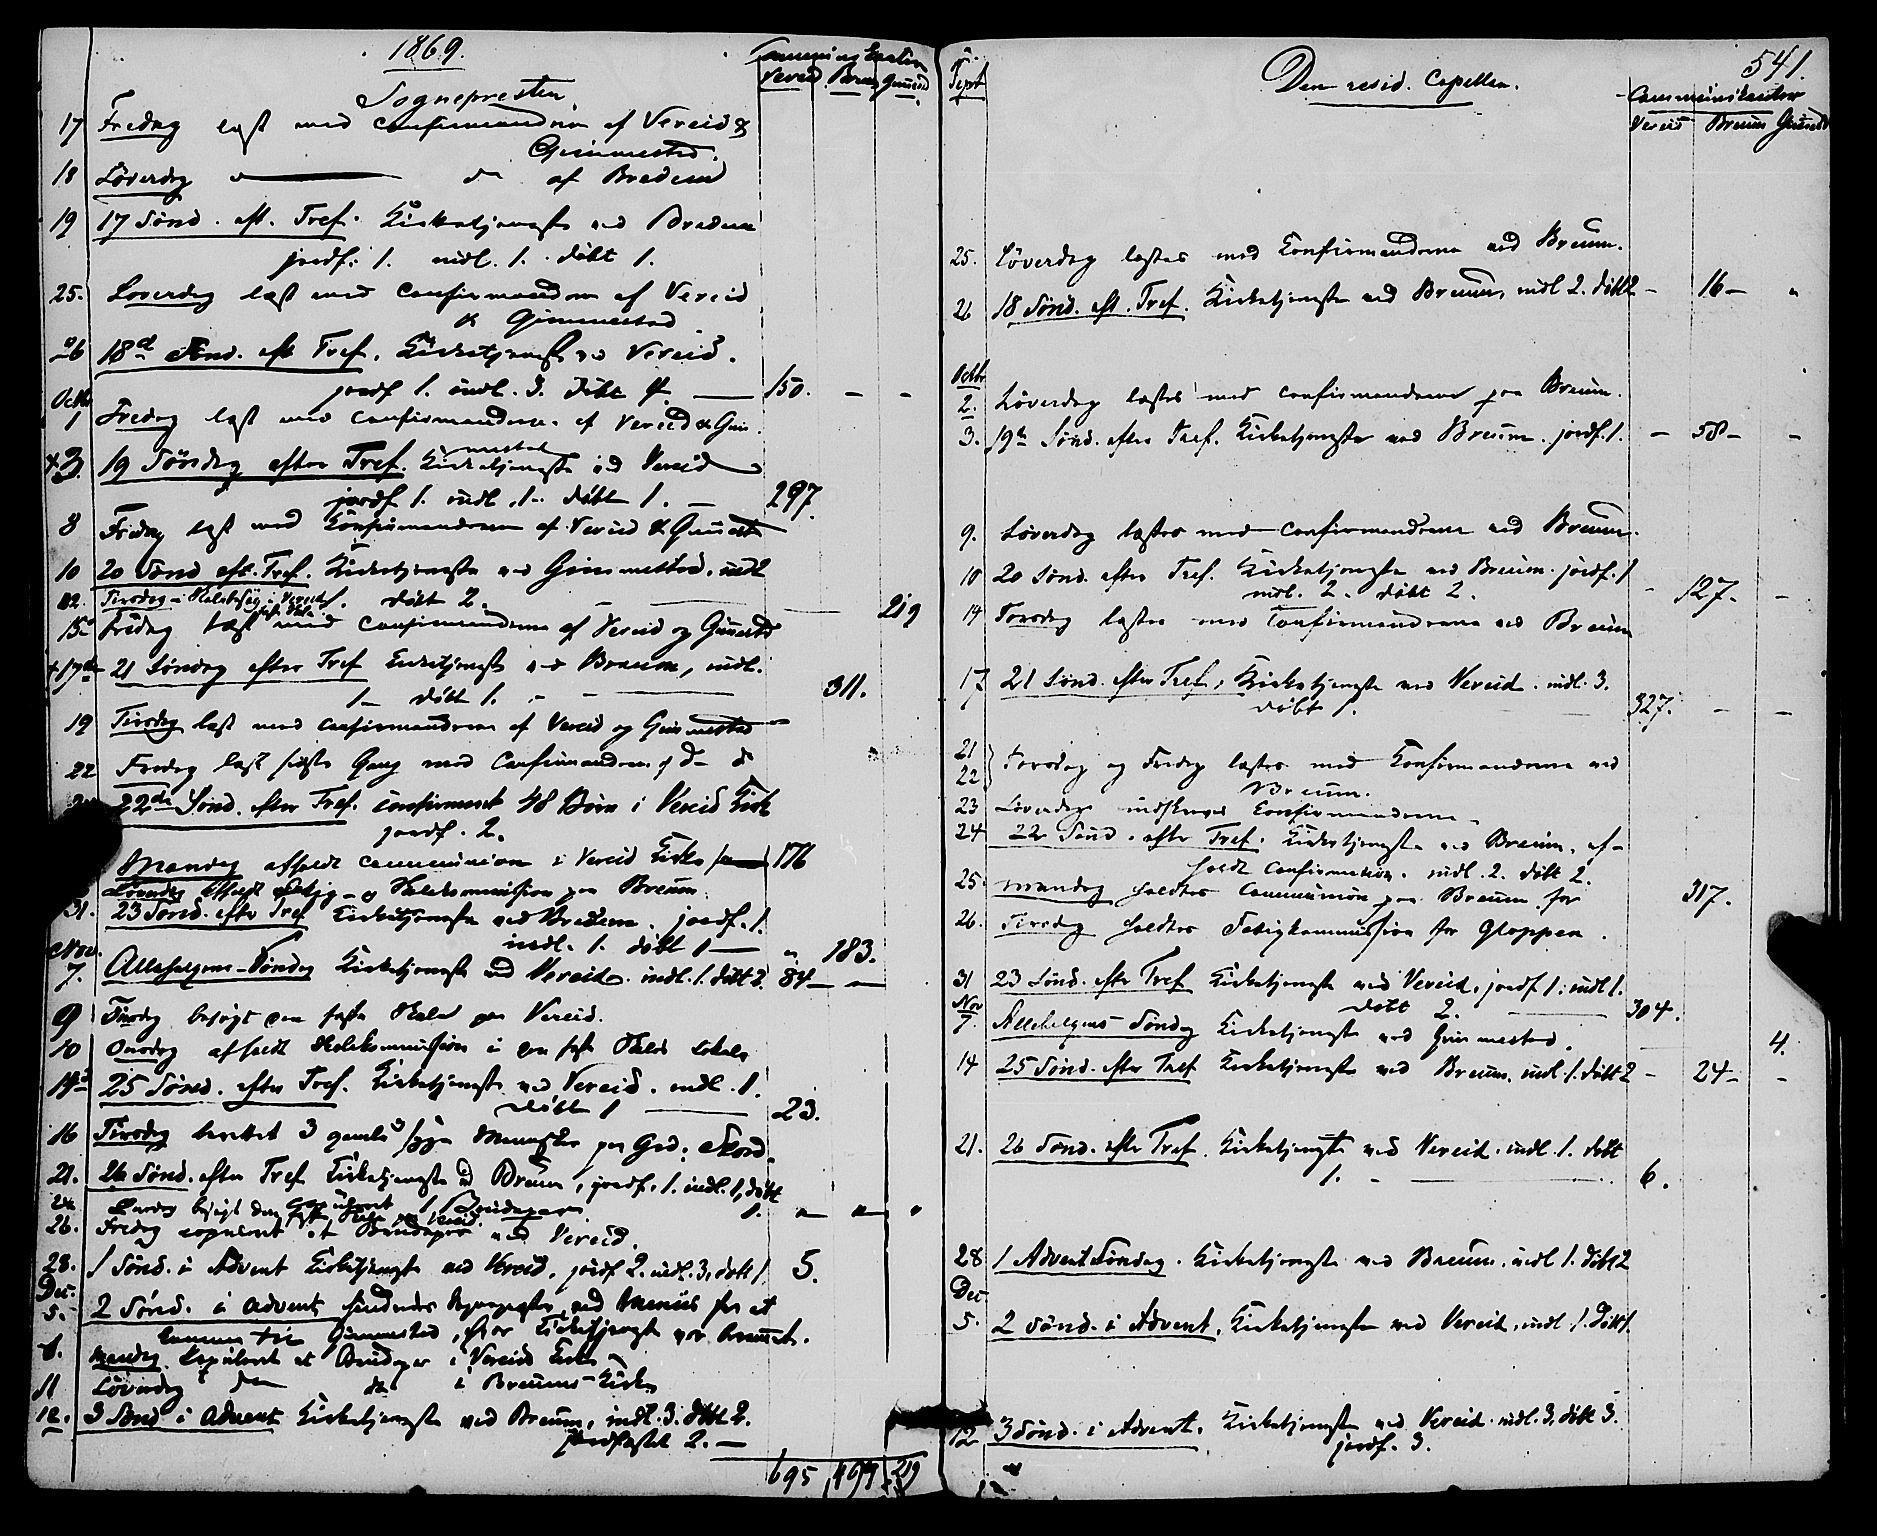 1869.
Sognepresten
Communicanter
Vereid Breum Gimestad
17 Fredag læst med Confirmanderne af Vereid &
Gimmestad.
18 Löverdag do af Bredeim
19 17 Sönd. eft. Tref. Kirketjeneste ved Bredeim
jordf. 1. indl. 1. döbt 1.
25. Loverdag læst med Confirmanderne af Vereid
& Gimmestad
26 18d Sönd. eft Tref. Kirketjeneste ved Vereid.
jordf 1. indl. 3. döbt 4. — 150. - -
Octbr
1 Fredag læst med Confirmanderne af Vereid & Gim
mestad
3. 19 Söndag efter Tref. Kirketjeneste ved Vereid
jordf 1. indl. 1. döbt 1. — 297.
8 Fredag læst med Confirmanderne af Vereid & Gimest
10 20 Sönd eft. Tref. Kirketjeneste ved Gimmestad. indl
1. döbt 2. — 219
12. Tirsdag i Vereid
15 Fredag læst med Confirmanderne af Vereid og Gimestd
17de 21 Söndag efter Tref Kirketjeneste ved Breum, indl.
1 - döbt 1. - 311.
19 Tirsdag læst med Confirmanderne af Vereid og Gimmestad
22 Fredag læst sidste Gang med Confirmanderne af do do
22de Sönd. efter Tref. confirmeret 48 Börn i Vereid Kirk
jordf. 2.
Mandag afholdt Communion i Vereid Kirke 176
Löverdag afholdt Fattig- og Skolekommission paa Breum.
31. 23 Sönd. efter Tref Kirketjeneste ved Bredeim. jordf. 1.
indl. 1. döbt 1 — „ 183.
Nov.
7. Allehelgens-Söndag Kirketjeneste ved Vereid. indl. 1. döbt 2. 84 — —
9 Tirsdag besögt den faste Skole paa Vereid.
10 Onsdag afholdt Skolekommission i den faste Skoles Lokale
14d 25 Sönd. efter Tref. Kirketjeneste ved Vereid. indl. 1.
döbt 1 — 23.
16 Tirsdag berettet 3 gamle syge Mennesker paa Grd. Skord.
21. 26 Sönd. efter Tref Kirketjeneste ved Breum, jordf. 1. indl. 1, döbt
1. „ „ „
24 Onsdag besögt den faste Skole paa Vereid.
26. Fredag copuleret et Brudepar ved Vereid.
28. 1 Sönd. i Advent Kirketjeneste ved Vereid. jordf 2. indl. 3, döbt 1. 5.
Dec.
5. 2 Sönd. i Advent hindredes Sognepresten ved Menüs fra at
komme til Gimmestad, hvor Kirketjeneste var berammet.
6. Mandag Kopuleret et Brudepar i Vereids Kirke
11 Löverdag do do i Breums-Kirke
12. 3 Sönd i Advent Kirketjeneste ved Breum, indl. 3. döbt 2.
jordfæstet 2. —
695 499 219
541.
Sept
Den resid. Capellan.
Communikanter
Vereid Breum Gimestd
25. Löverdag læstes med Confirmanderne ved Breum.
26 18 Sönd. eft. Tref. Kirketjeneste ved Breum, indl 2. döbt 2 - 16 - „
Octbr
2. Löverdag læstes med Confirmanderne paa Breum.
3. 19de Sönd. efter Tref. Kirketjeneste ved Breum. jordf. 1. - 58 - -
9. Löverdag læstes med Confirmanderne ved Breum.
10 20 Sönd. efter Tref. Kirketjeneste ved Breum. jordf. 1
indl. 2. döbt 2. - 127. -
14 Torsdag læstes med Confirmanderne ved Breum
17 21 Sönd. efter Tref, Kirketjeneste ved Vereid. indl. 3.
döbt 1. 327. - -
21
22 } Torsdag og Fredag læstes med Konfirmanderne ved
Breum.
23 Löverdag indskreves Confirmanderne.
24 22 Sönd. efter Tref. Kirketjeneste ved Breum. af-
holdt Confirmation. indl. 2. döbt 2.
25. Mandag holdtes Communion paa Breum for 317.
26. Tirsdag holdtes Fatigkommission for Gloppen.
31 23 Sönd. efter Tref Kirketjeneste ved Vereid, jordf 1. indl 1.
döbt 2. 304.
Nov
7. Allehelgens Söndag Kirketjeneste ved Gimmestad. 4.
14 25 Sönd. efter Tref Kirketjeneste ved Breum. indl. 1. döbt 2 - 24 - -
21. 26 Sönd. efter Tref. Kirketjeneste ved Vereid. indl. 1. döbt
1. - 6.
28 1 Advent Söndag. Kirketjeneste ved Breum. indl 1. döbt 2
Dec
5. 2 Sönd. i Advent. Kirketjeneste ved Vereid. indl. 1. Döbt 1.
12 3 Sönd. i Advent. Kirketjeneste ved Vereid. indl. 3. döbt 3.
jordf. 3.